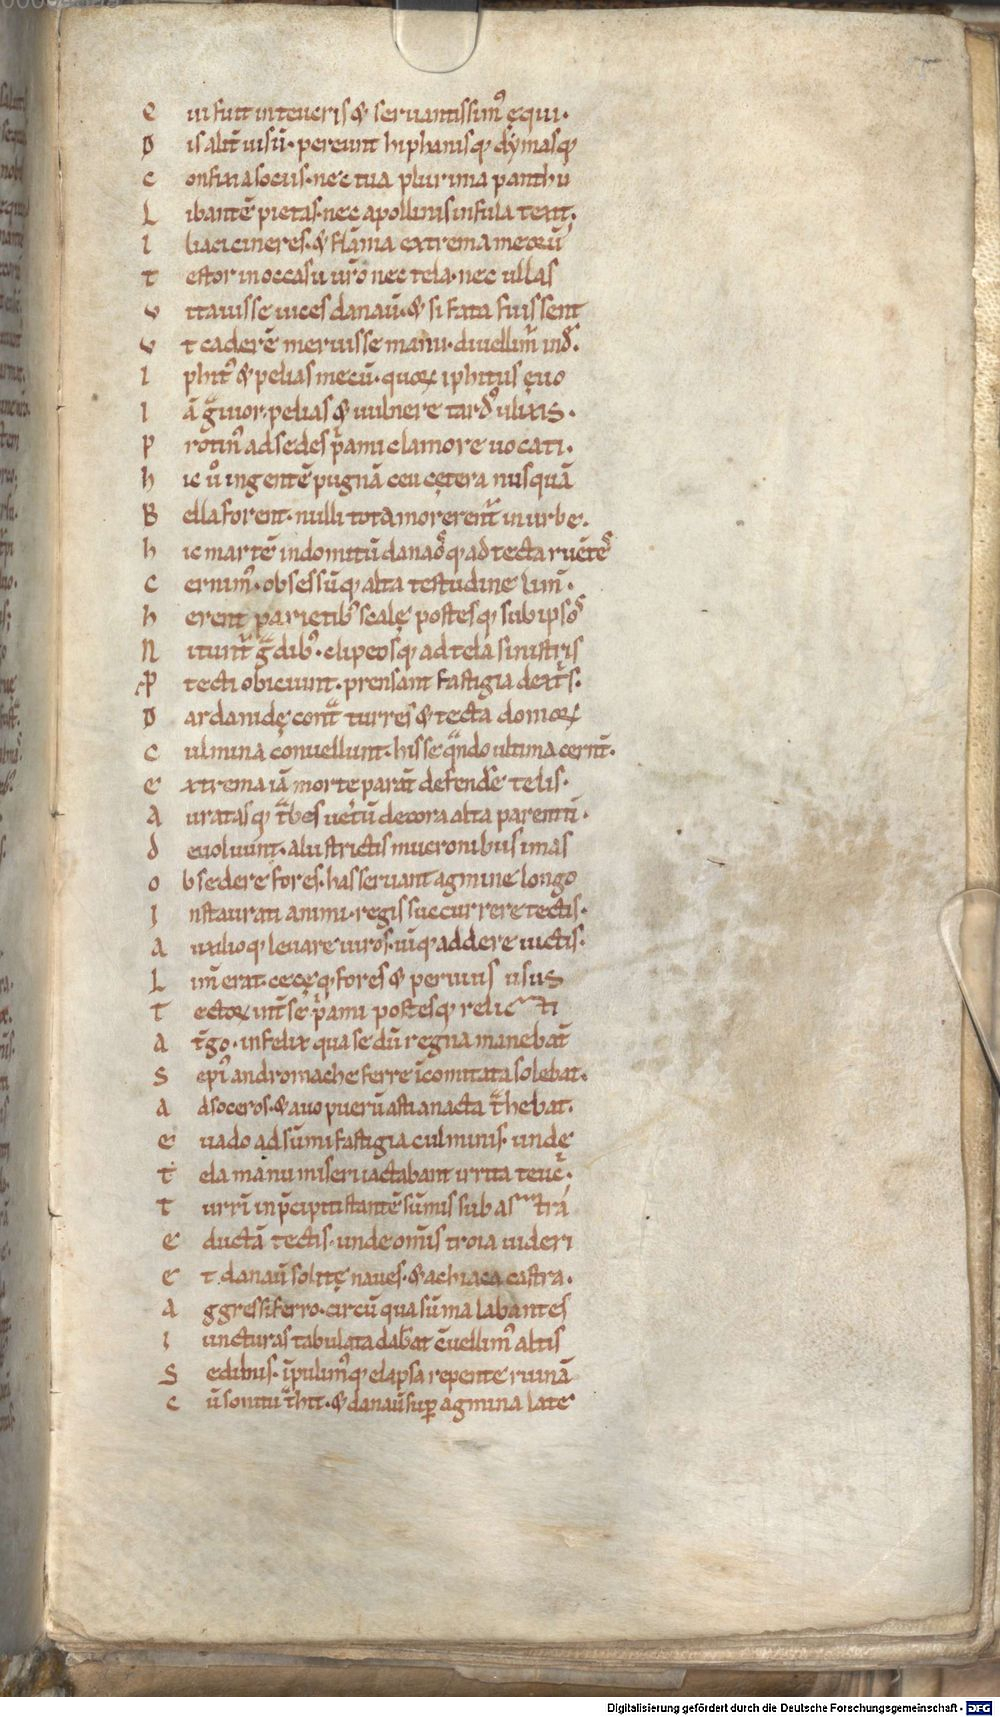 E ui fuit in teucris & seruantissim᷒ ęqui·
D is alit̄ uisū· pereunt hiphanisq; dẏmasq;
C onfixi a sociis· nec tua plurima panthu
L ibantē pietas· nec apollinis infula texit̄·
I liaci cineres· & flāma extrema meoꝝ
T estor in occasu ur̄o nec tela· nec ullas
V itauisse uices danaū· & si fata fuissent
V t caderē meruisse manu· diuellim᷒ ind̄·
I phit᷒ & pelias mecū· quoꝝ iphitus ęuo
I ā gͣuior· pelias & uulnere tard᷒ ulixis·
P rotin᷒ ad sedes p̄ami clamore uocati·
h ic ů ingentē pugnā ceu cętera nusquā
B ella forent· nulli tota morerent᷑ in urbe·
h ic martē indomitū danaoˢq; ad tecta ruētēˢ
C ernim᷒· obsessūq; acta testudine limē·
h erent parietib᷒ scalę postesq; sub ipsoˢ
N itunt᷑ gͣdib᷒· clipeosq; ad tela sinistris
P tecti obiciunt· prensant fastigia dext̄s·
D ardanidę contͣ turres & tecta domoꝝ
C ulmina conuellunt· his se qͣndo ultima cernt̄·
E xtrema iā morte parant̄ defendēe telis·
A uratasq; tͣbes uet̄ū decora alta parentū·
D euoluunt· alii strictis mucronibus imas
O bsedere fores· has seruant agmine longo
I nstaurati animi· regis succurrere tectis·
A uxilioq; leuare uiros· uīq; addere uictis·
L im̄ erat· cęcęq; fores & peruius usus
T ectoꝝ int̄ se p̄ami postesq; relicti
A t̄go· infelix qua se dū regna manebāt
S epi᷒ andromache ferre īcomitata solebat·
A d soceros· & auo puerū astianacta tͣhebat·
E uado ad sūmi fastigia culminis· undę
T ela manu miseri iactabant irrita teuc̄·
T urrī in p̄cipiti stantē sūmis sub astrá
E ductā tectis· unde om̄is troia uideri
E t danaū solitę naues· & achiaca castra·
A ggressi ferro· circū qua sūma labantes
I uncturas tabulata dabāt cōuellim᷒ altis
S edibus· īpulim᷒q; elapsa repente ruinā
C ū sonitu tͣhit· & danaū suꝑ agmina late
Digitalisierung gefördert durch die Deutsche Forschungsgemeinschaft - DFG